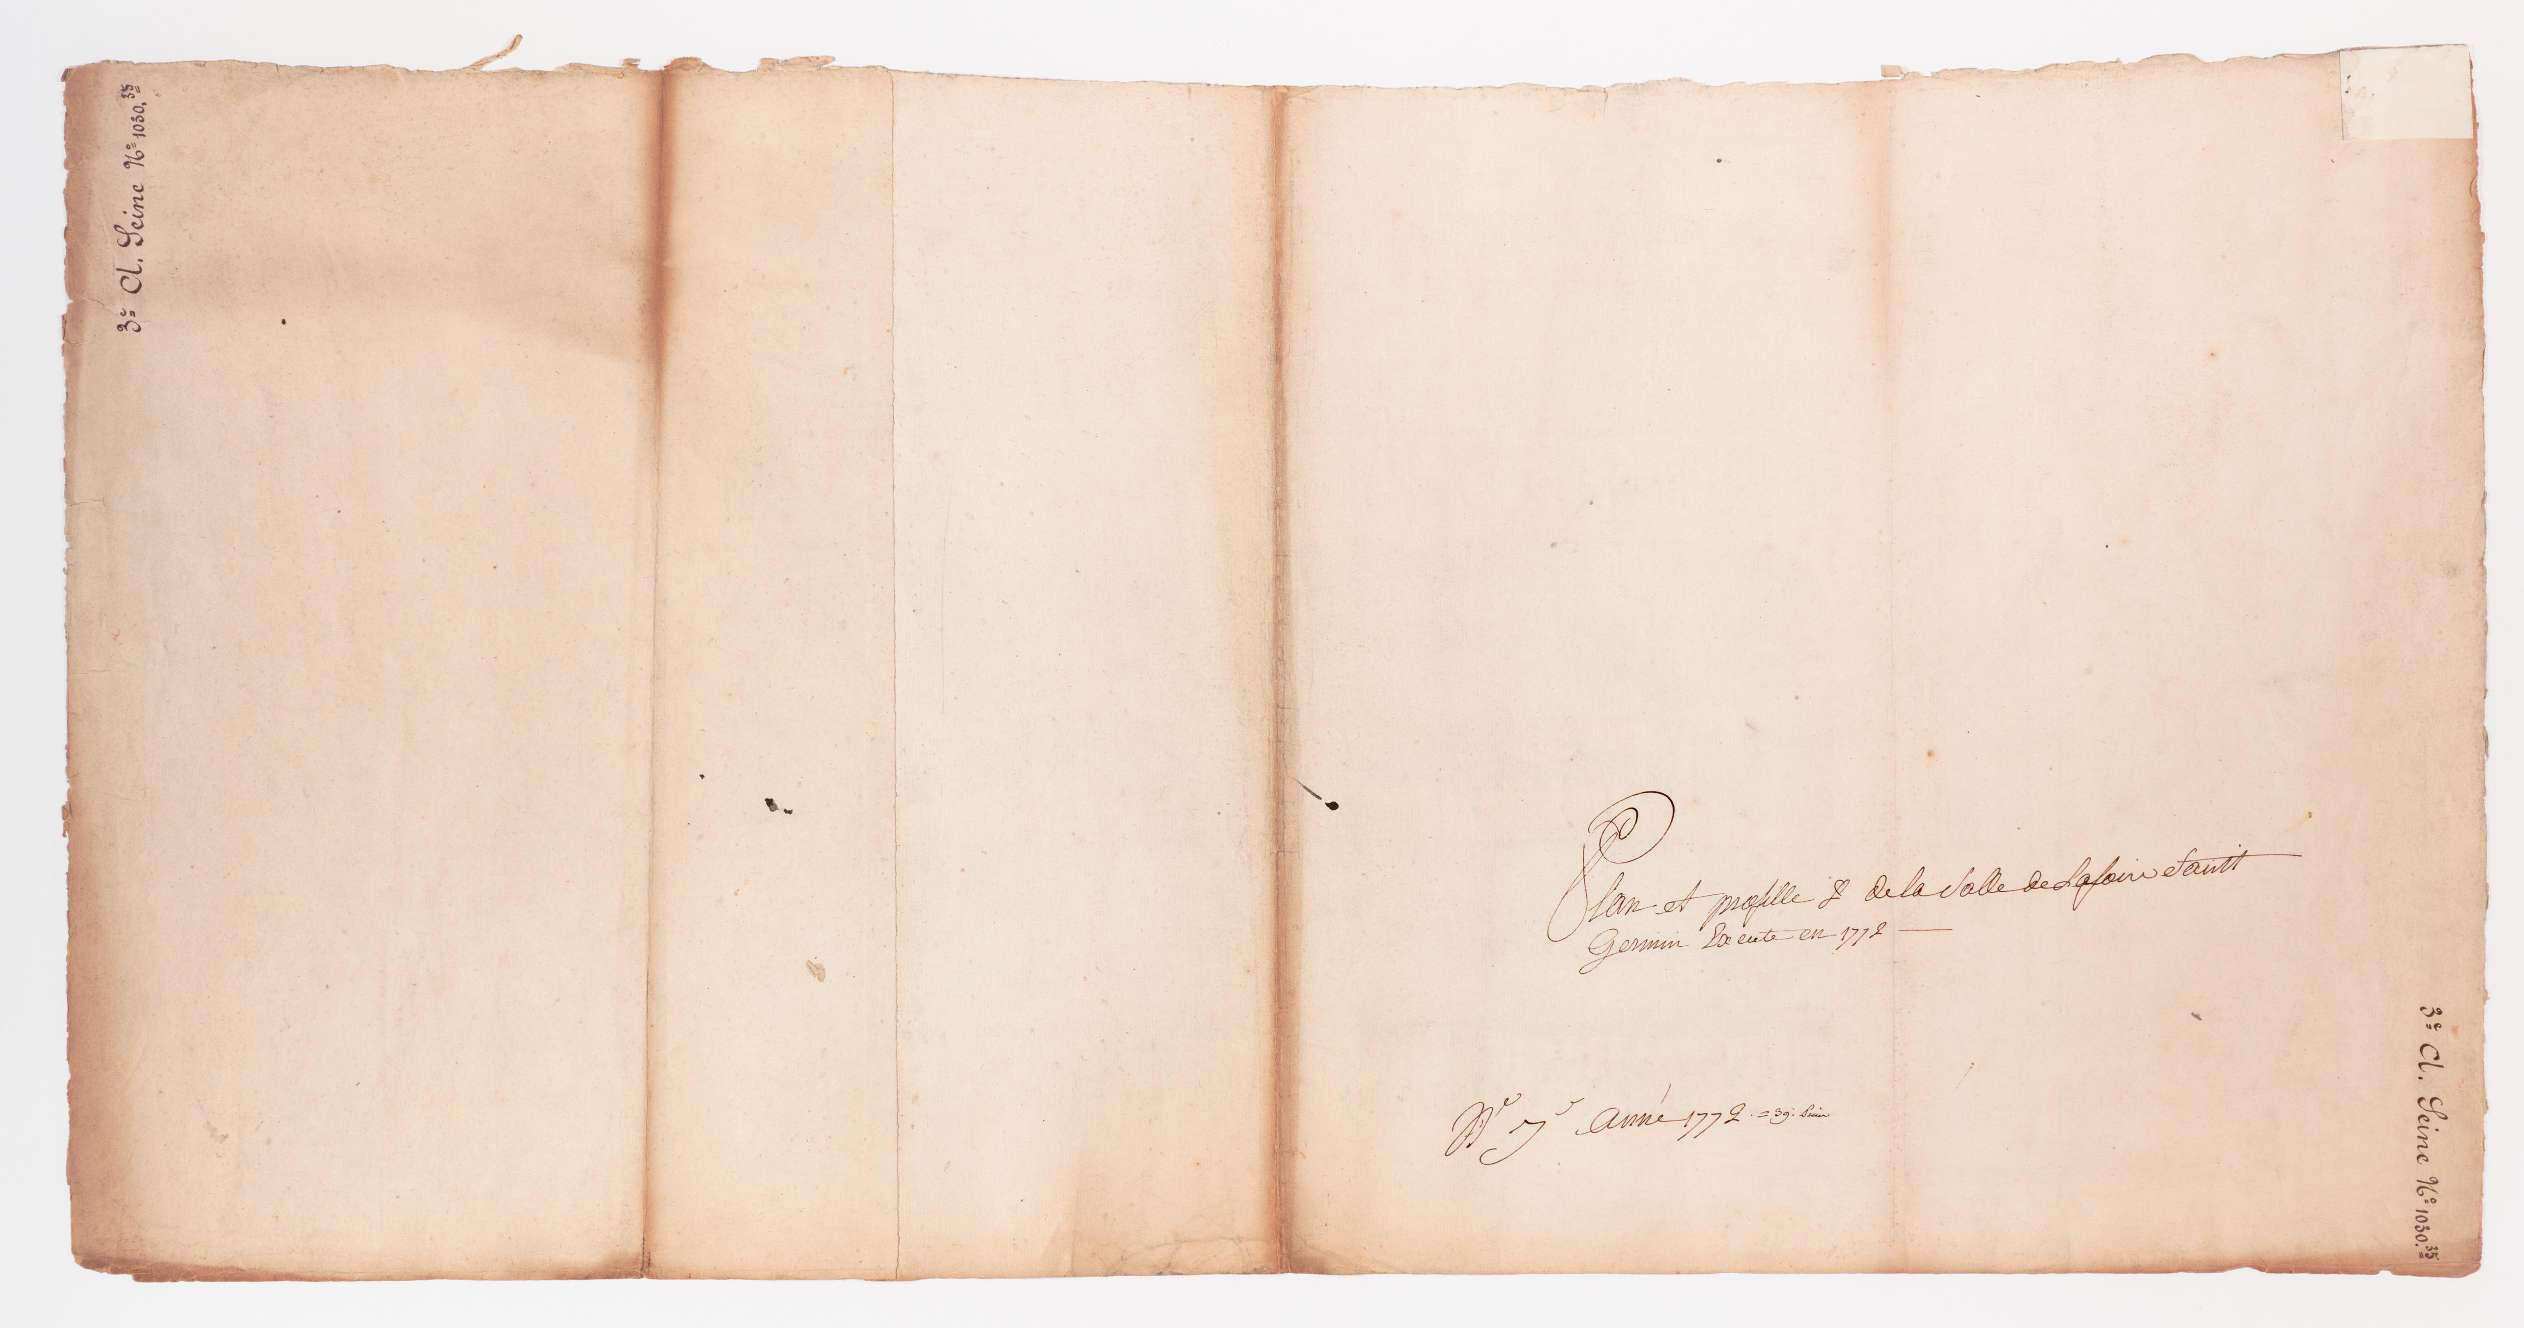 3e Cl. Seine No 1030.35
Plan et profille & de la Salle de Lafoire Saint
Germin Execute en 1772
No 7e Anné 1772 . = 39.
3e Cl. Seine No 1030.35